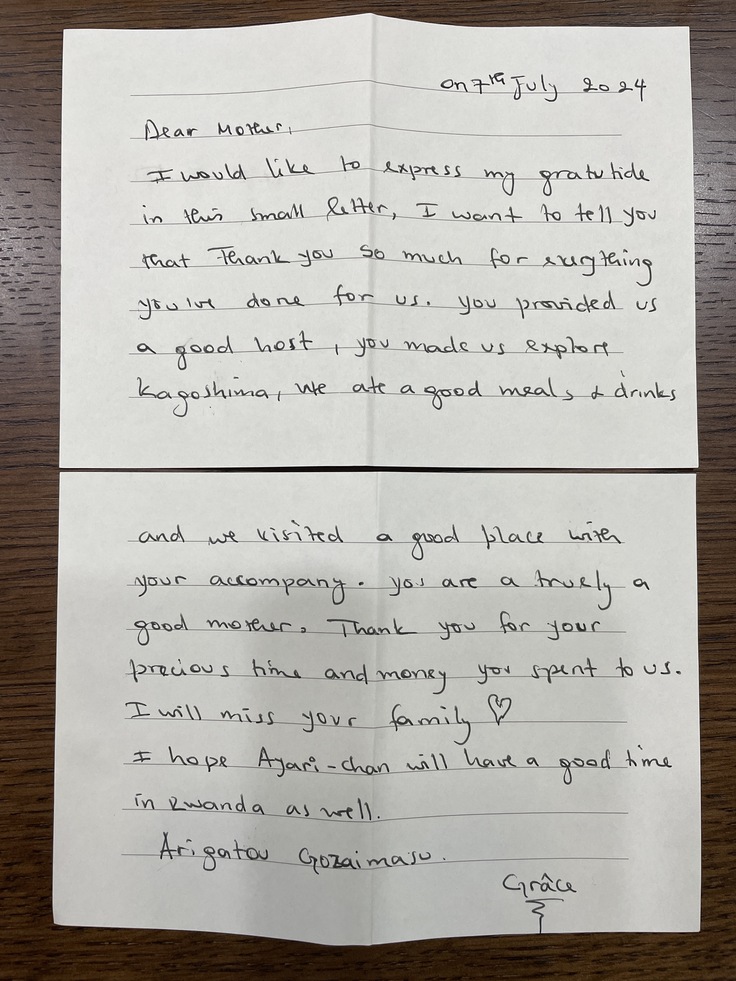 on 7th July 2024
Dear Mother,
I would like to express my gratutide
in this small letter, I want to tell you
that Thank you so much for everything
you've done for us. you provided us
a good host, you made us explore
Kagoshima, we ate a good meals & drinks
and we visited a good place with
your accompany. you are a truely a
good mother. Thank you for your
precious time and money you spent to us.
I will miss your family ♡
I hope Ayari-chan will have a good time
in Rwanda as well.
Arigatou Gozaimasu.
Grâce